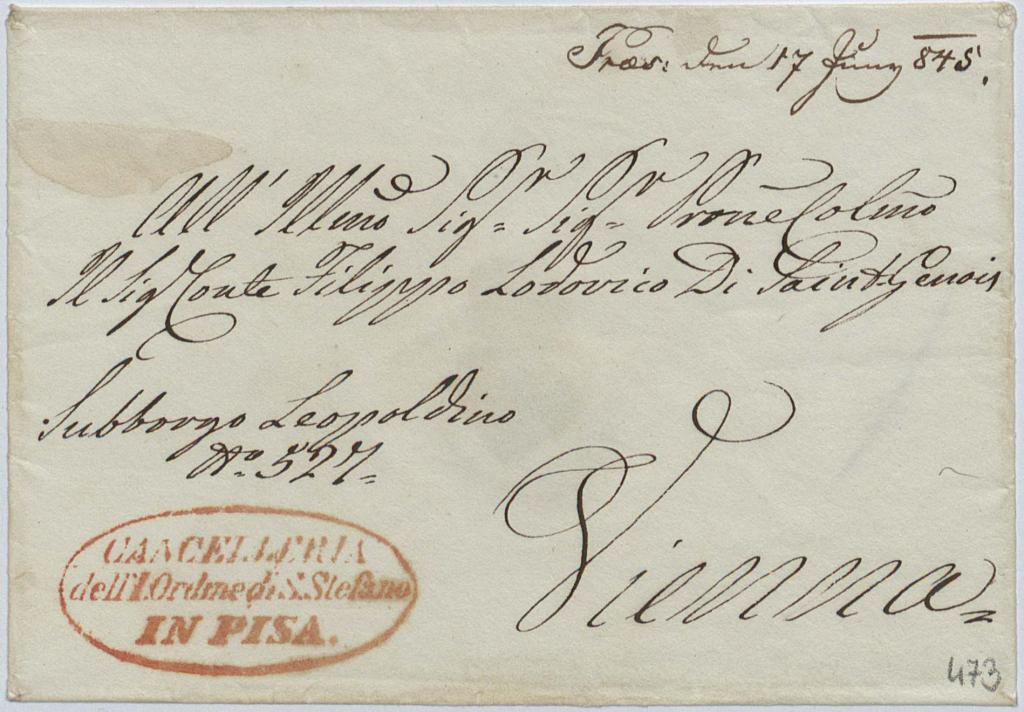 Præs: den 17 Juny 845.
All' Illmo Sigr Sigr Prone Colmo
Il Sig Conte Filippo Lodovico Di Saint Genois
Subborgo Leopoldino
No. 527
Vienna
CANCELLERIA
dell'I. Ordine di S. Stefano
IN PISA.
473